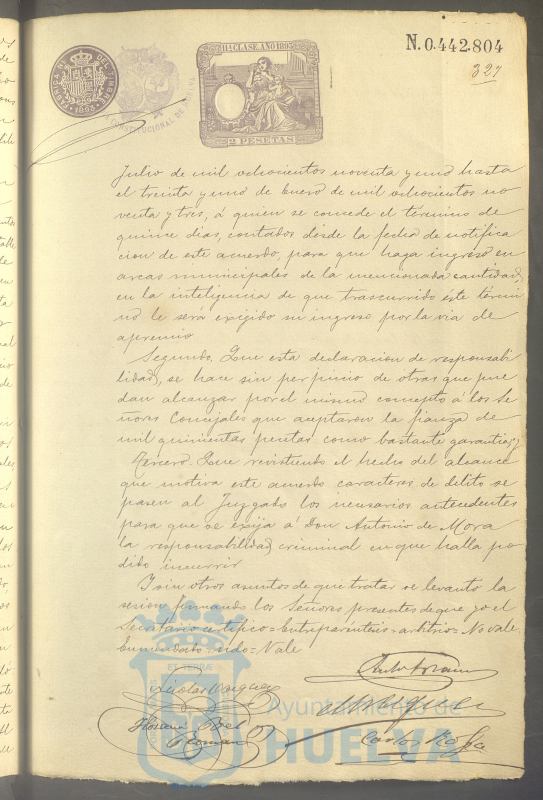 11ª CLASE. AÑO 1893
2 PESETAS
N.0.442.804
327
Julio de mil ochocientos noventa y uno hasta
el treinta y uno de Enero de mil ochocientos no
venta y tres, á quien se concede el término de
quince dias, contados desde la fecha de notifica
cion de este acuerdo, para que haga ingreso en
arcas municipales de la mencionada cantidad,
en la inteligencia de que trascurrido éste térmi
no le será exigido su ingreso por la via de
apremio
Segundo. Que esta declaracion de responsabi
lidad, se hace sin perjuicio de otras que pue
dan alcanzar por el mismo concepto á los Se
ñores Concejales que aceptaron la fianza de
mil quinientas pesetas como bastante garantia; y
Tercero. Que revistiendo el hecho del alcance
que motiva este acuerdo caracteres de delito se
pasen al Juzgado los necesarios antecedentes
para que se exija á Don Antonio de Mora
la responsabilidad criminal en que halla po
dido incurrir
Y sin otros asuntos de que tratar se levantó la
sesion firmando los Señores presentes de que yo el
Secretario certifico = Entreparéntesis = arbitrio = No vale.
Enmendado = = Vale
Nicolas Vazquez
Roman
Carlos
Ayuntamiento de
HUELVA